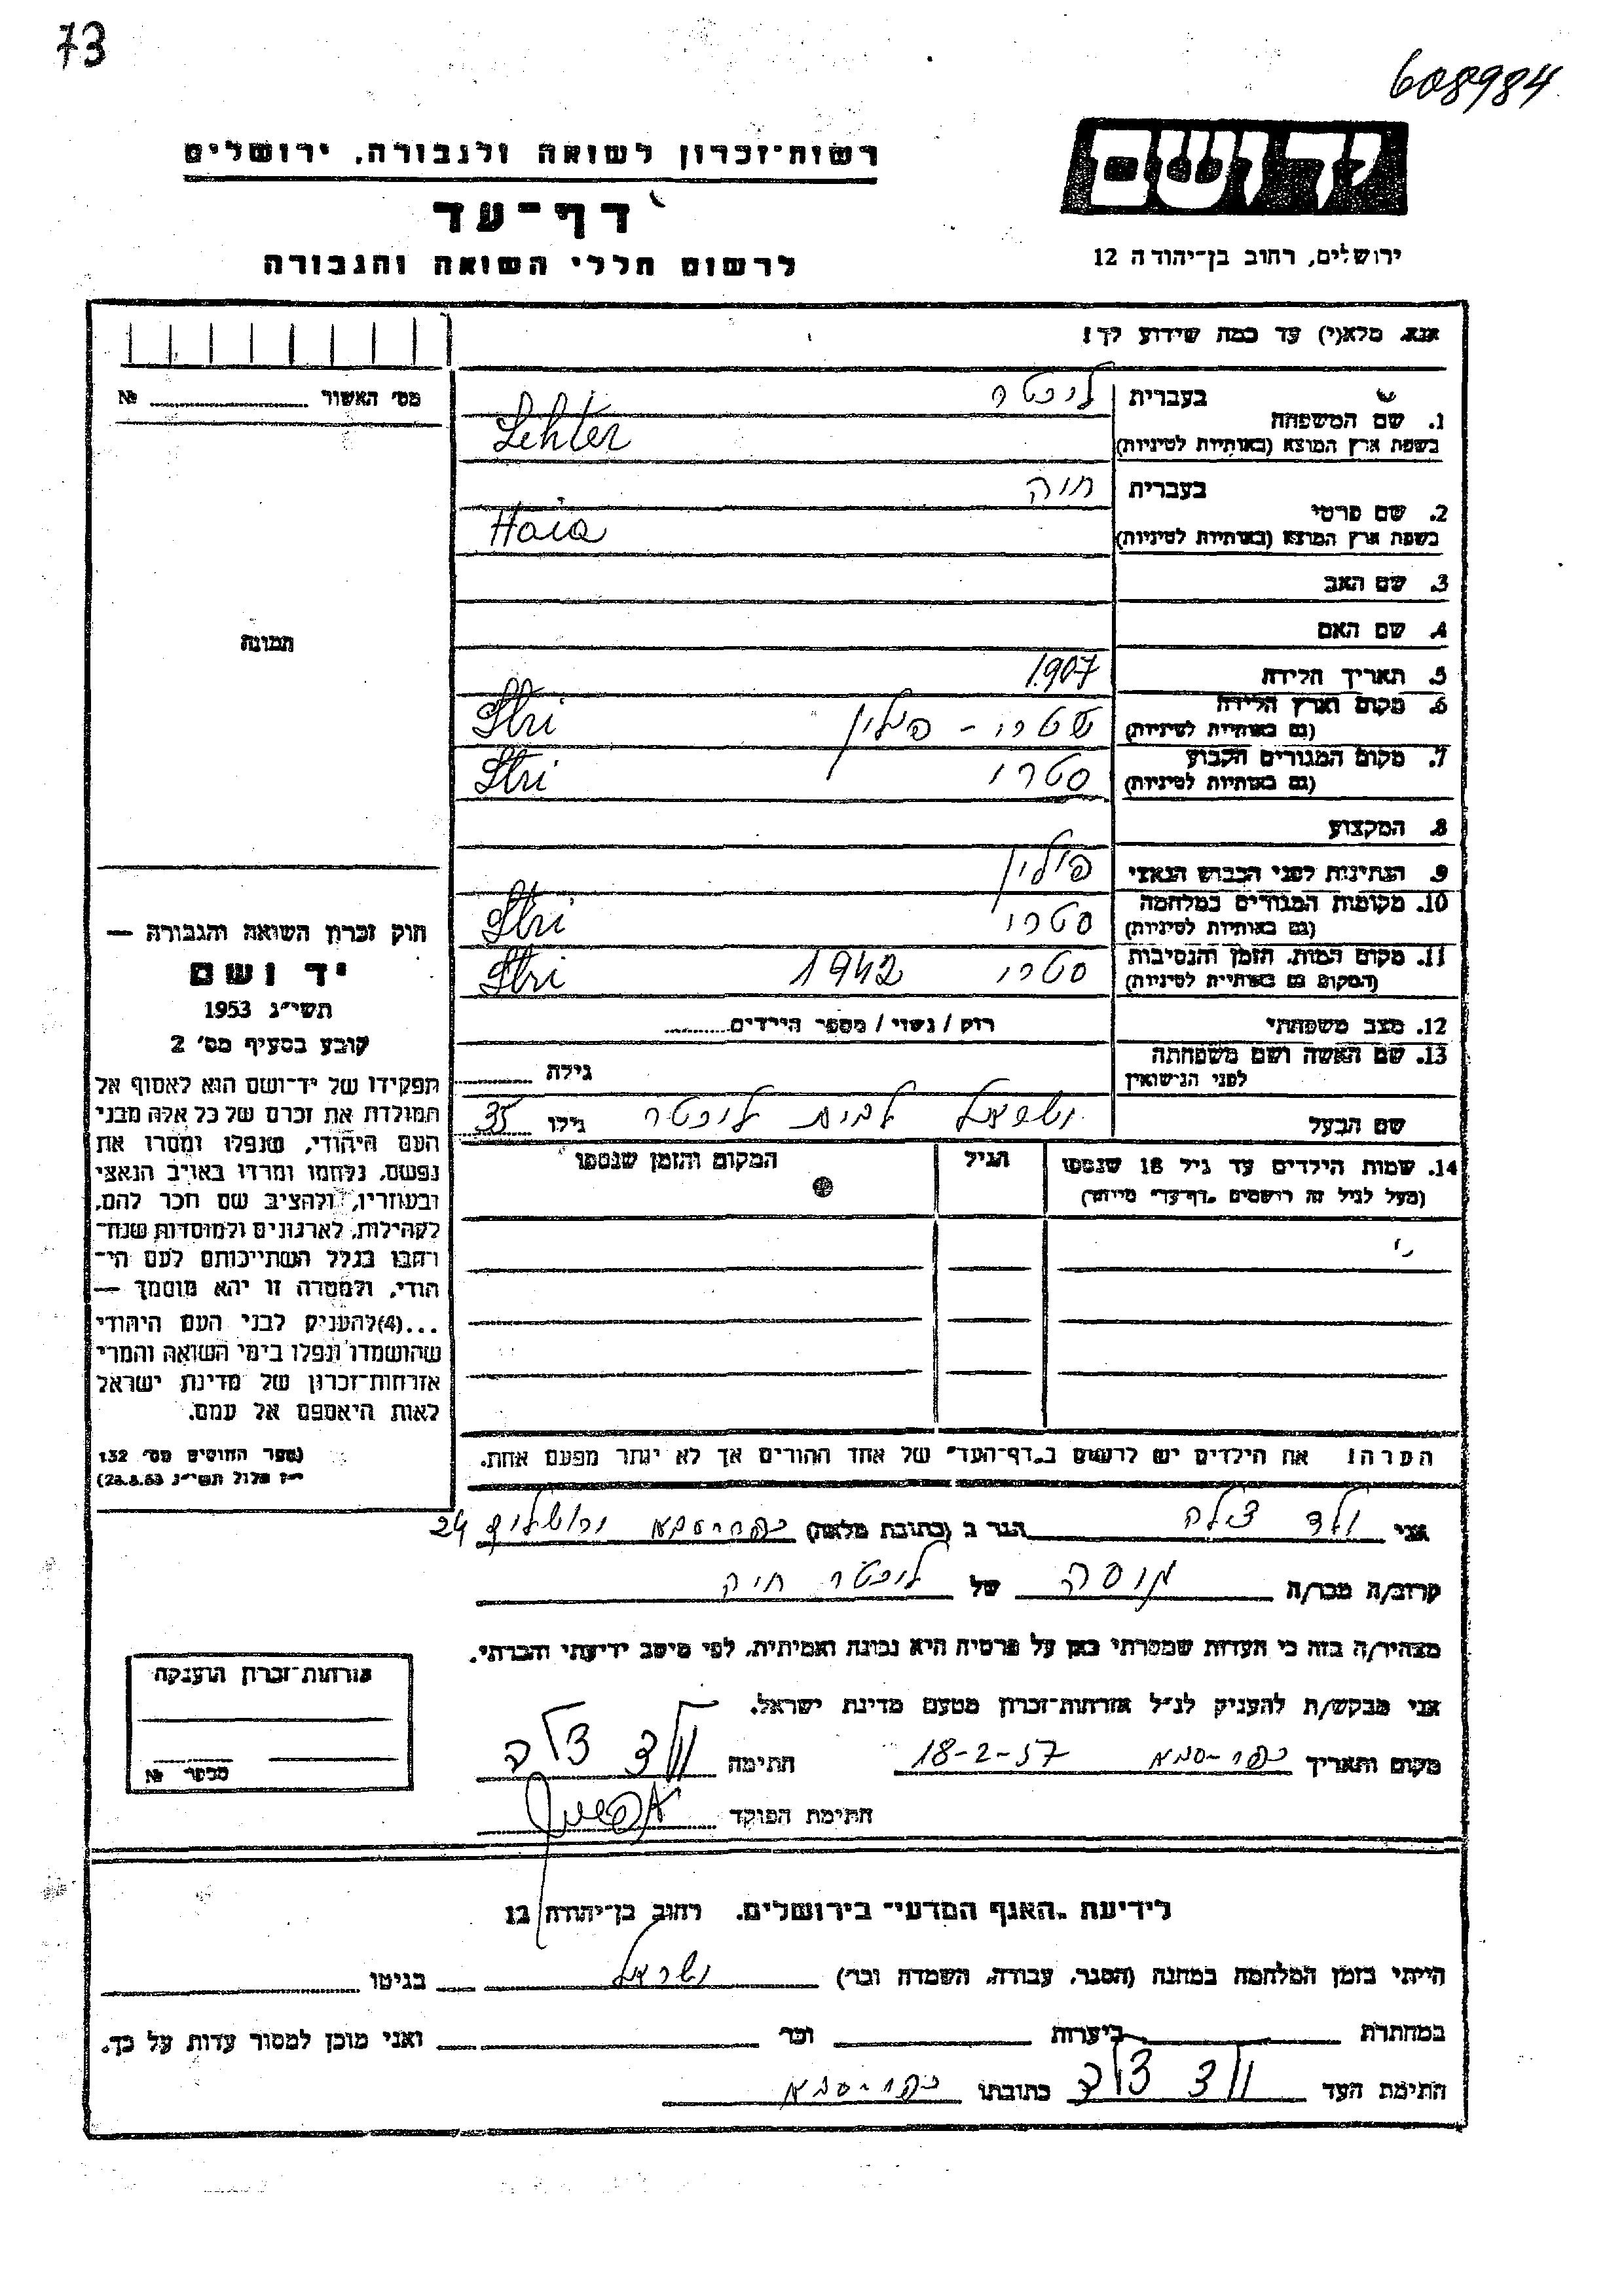 73
608984
יד ושם
ירושלים, רחוב בן־יהודה 12
רשות־זכרון לשואה ולגבורה, ירושלים
דף־עד
לרשום חללי השואה והגבורה
אנא, מלא(י) עד כמה שידוע לך!
מס׳ האשור № 
1. שם המשפחה
בעברית לוכטר
בשפת ארץ המוצא (באותיות לטיניות) Lehter
2. שם פרטי
בעברית חיה
בשפת ארץ המוצא (באותיות לטיניות) Haia
3. שם האב
4. שם האם
5. תאריך הלידה 1907
6. מקום וארץ הלידה
(גם באותיות לטיניות) שטרי - פולין Stri
7. מקום המגורים הקבוע
(גם באותיות לטיניות) סטרי Stri
8. המקצוע
9. הנתינות לפני הכבוש הנאצי פולין
10. מקומות המגורים במלחמה
(גם באותיות לטיניות) סטרי Stri
11. מקום המות, הזמן והנסיבות
(המקום גם באותיות לטיניות) סטרי 1942 Stri
12. מצב משפחתי רווק / נשוי / מספר הילדים
13. שם האשה ושם משפחתה
לפני הנישואין גילה
שם הבעל לבית לוכטר גילו 35
14. שמות הילדים עד גיל 18 שנספו הגיל המקום והזמן שנספו
(מעל לגיל זה רושמים "דף־עד" מיוחד)
תמונה
חוק זכרון השואה והגבורה —
יד ושם
תשי״ג 1953
קובע בסעיף מס׳ 2
תפקידו של יד־ושם הוא לאסוף אל
המולדת את זכרם של כל אלה מבני
העם היהודי, שנפלו ומסרו את
נפשם, נלחמו ומרדו באויב הנאצי
ובעוזריו, ולהציב שם וזכר להם,
לקהילות, לארגונים ולמוסדות שנח־
רבו בגלל השתייכותם לעם הי־
הודי, ולמטרה זו יהא מוסמך —
...(4)להעניק לבני העם היהודי
שהושמדו ונפלו בימי השואה והמרי
אזרחות־זכרון של מדינת ישראל
לאות היאספם אל עמם.
(ספר החוקים מס׳ 132
י״ז אלול תשי״ג 28.8.53)
הערה! את הילדים יש לרשום ב"דף־העד" של אחד ההורים אך לא יותר מפעם אחת.
אני ולד צילה הגר ב (כתובת מלאה) כפר-סבא ירושלים 24
קרוב/ה מכר/ה של לוכטר חיה
מצהיר/ה בזה כי העדות שמסרתי כאן על פרטיה היא נכונה ואמיתית, לפי מיטב ידיעתי והכרתי.
אני מבקש/ת להעניק לנ״ל אזרחות־זכרון מטעם מדינת ישראל.
מקום ותאריך כפר-סבא 18-2-57 חתימה ולד צילה
חתימת הפוקד
אזרחות־זכרון הוענקה
מספר №
לידיעת "האגף המדעי" בירושלים, רחוב בן־יהודה 12
הייתי בזמן המלחמה במחנה (הסגר, עבודה, השמדה וכו׳) ישראל בגיטו
במחתרת ביערות וכו׳ ואני מוכן למסור עדות על כך.
חתימת העד ולד צילה כתובתו כפר-סבא